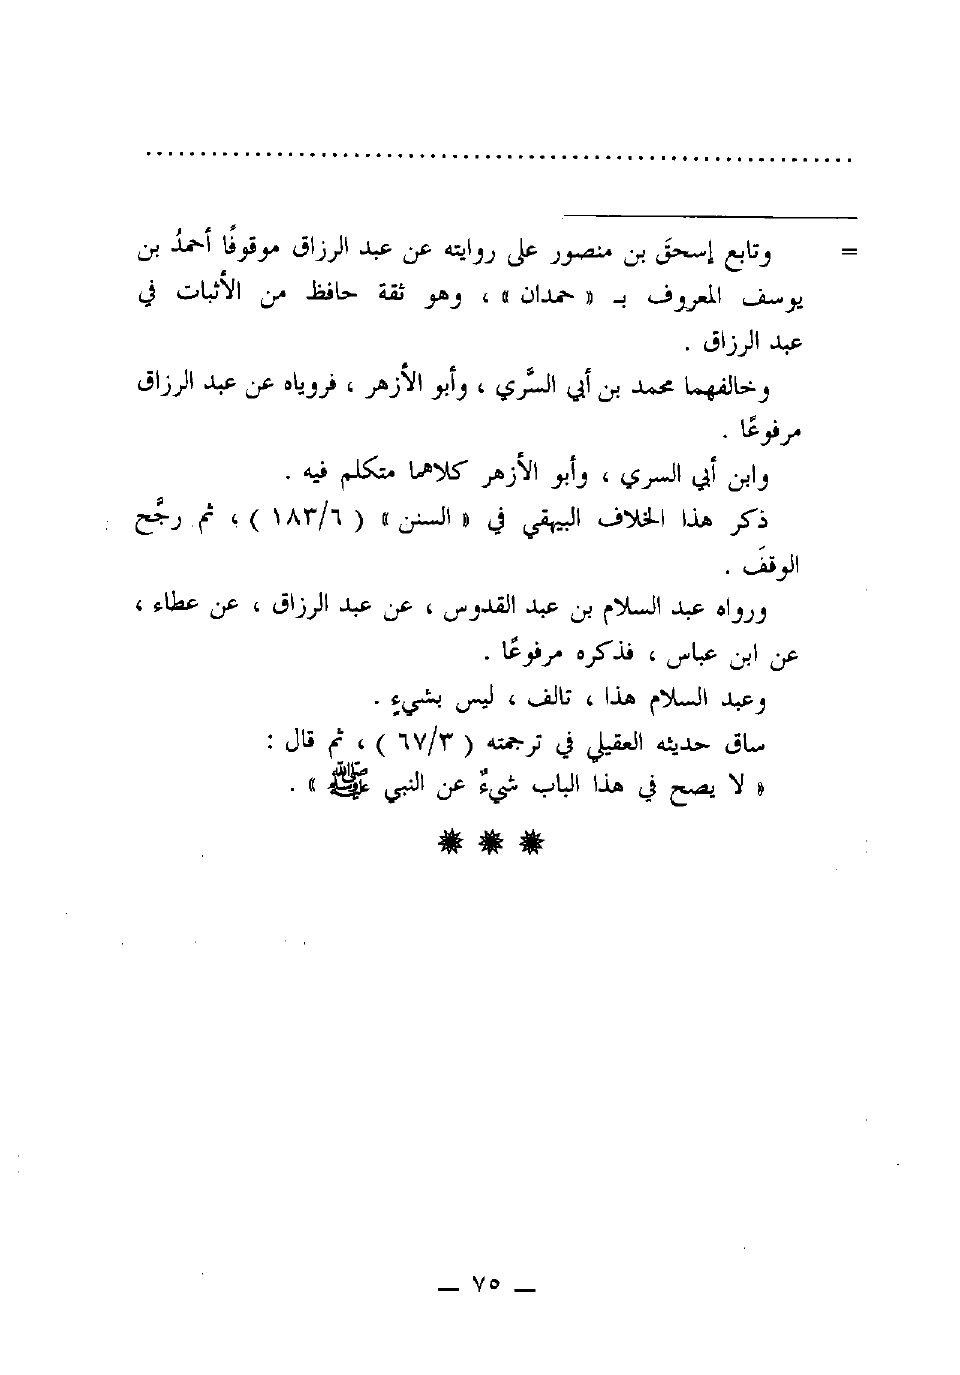 ................................................................
= وتابع إسحقَ بن منصور على روايته عن عبد الرزاق موقوفًا أحمدُ بن
يوسف المعروف بـ « حمدان » ، وهو ثقة حافظ من الأثبات في
عبد الرزاق .
وخالفهما محمد بن أبي السَّري ، وأبو الأزهر ، فروياه عن عبد الرزاق
مرفوعًا .
وابن أبي السري ، وأبو الأزهر كلاهما متكلم فيه .
ذكر هذا الخلاف البيهقي في « السنن » ( ١٨٣/٦ ) ، ثم رجَّح
الوقفَ .
ورواه عبد السلام بن عبد القدوس ، عن عبد الرزاق ، عن عطاء ،
عن ابن عباس ، فذكره مرفوعًا .
وعبد السلام هذا ، تالف ، ليس بشيءٍ .
ساق حديثه العقيلي في ترجمته ( ٦٧/٣ ) ، ثم قال :
« لا يصح في هذا الباب شيءٌ عن النبي ﷺ » .
— ٧٥ —